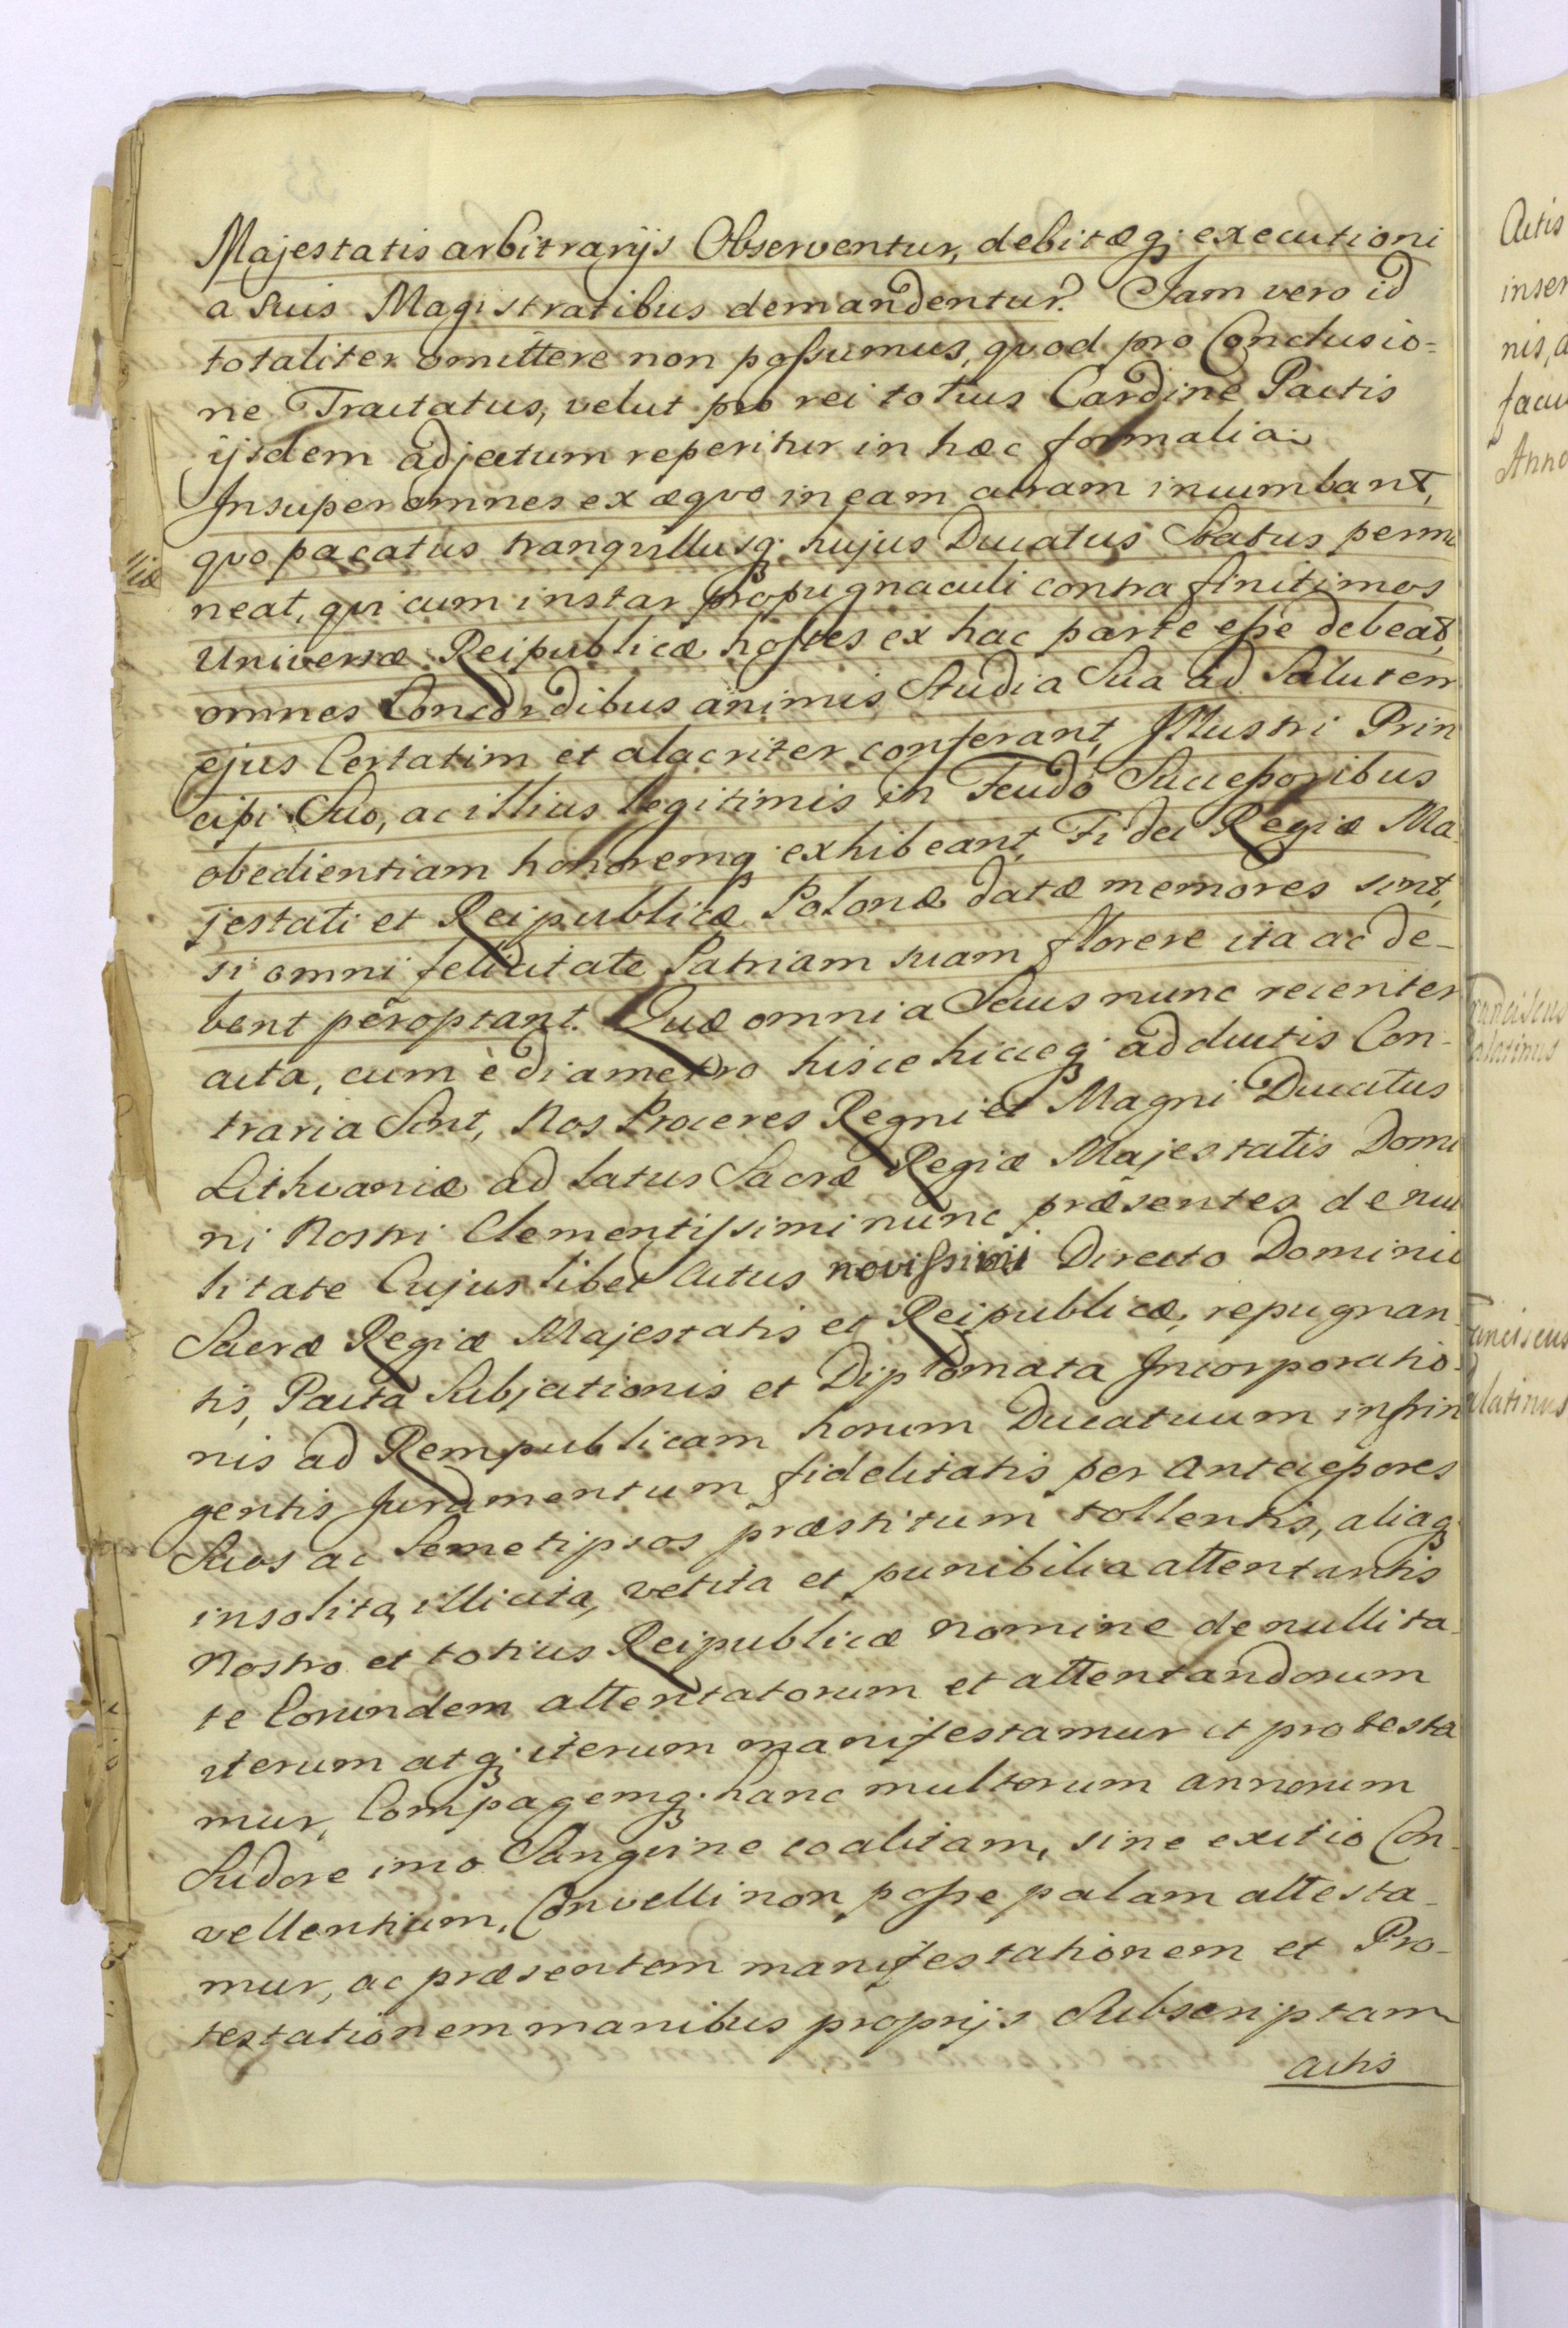 Majestatis arbitrarijs Observentur, debitæq; executioni
a suis Magistratibus demandentur. Jam vero id
totaliter omittere non possumus, quod pro Conclusio=
ne Tractatus, velut pro rei totius Cardine Pactis
ijsdem adjectum reperitur in hæc formalia:
Insuper omnes ex æquo in eam curam incumbant,
quo pacatus tranquillusq; hujus Ducatus Status perma
neat, qui cum instar Propugnaculi contra finitimos
Universæ Reipublicæ hostes ex hac parte esse debeat,
omnes Concordibus animis Studia Sua ad Salutem
ejus Certatim et alacriter conferant, Illustri Prin
cipi Suo, ac illius legitimis in Feudo Successoribus
obedientiam honoremq; exhibeant, Fidei Regiæ Ma
jestati et Reipublicæ Polonæ datæ memores sint,
si omni felicitate Patriam suam florere ita ac de-
bent peroptant. Quæ omnia Secus nunc recenter
acta, cum è diametro hisce hicceq; adductis Con-
traria Sint, Nos Proceres Regni et Magni Ducatus
Lithvaniæ ad latus Sacræ Regiæ Majestatis Domi
ni Nostri Clementissimi nunc præsentes de nul
litate Cujuslibet Actus novissimi Directo Dominio
Sacræ Regiæ Majestatis et Reipublicæ, repugnan-
tis, Pacta Subjectionis et Diplomata Incorporatio-
nis ad Rempublicam horum Ducatuum infrin
gentis Juramentum fidelitatis per Antecessores
Suos ac Semetipsos præstitum tollentis, aliaq;
insolita, illicita, vetita et punibilia attentantis
Nostro et totius Reipublicæ nomine de nullita-
te Eorundem attentatorum et attentandorum
iterum atq; iterum manifestamur et protesta
mur, Compagemq; hanc multorum annorum
Sudore imo Sanguine coalitam, sine exitio Con-
vellentium, Convelli non posse palam attesta-
mur, ac præsentem manifestationem et Pro-
testationem manibus proprijs Subscriptam
actis
Actis
nis, a
Anno